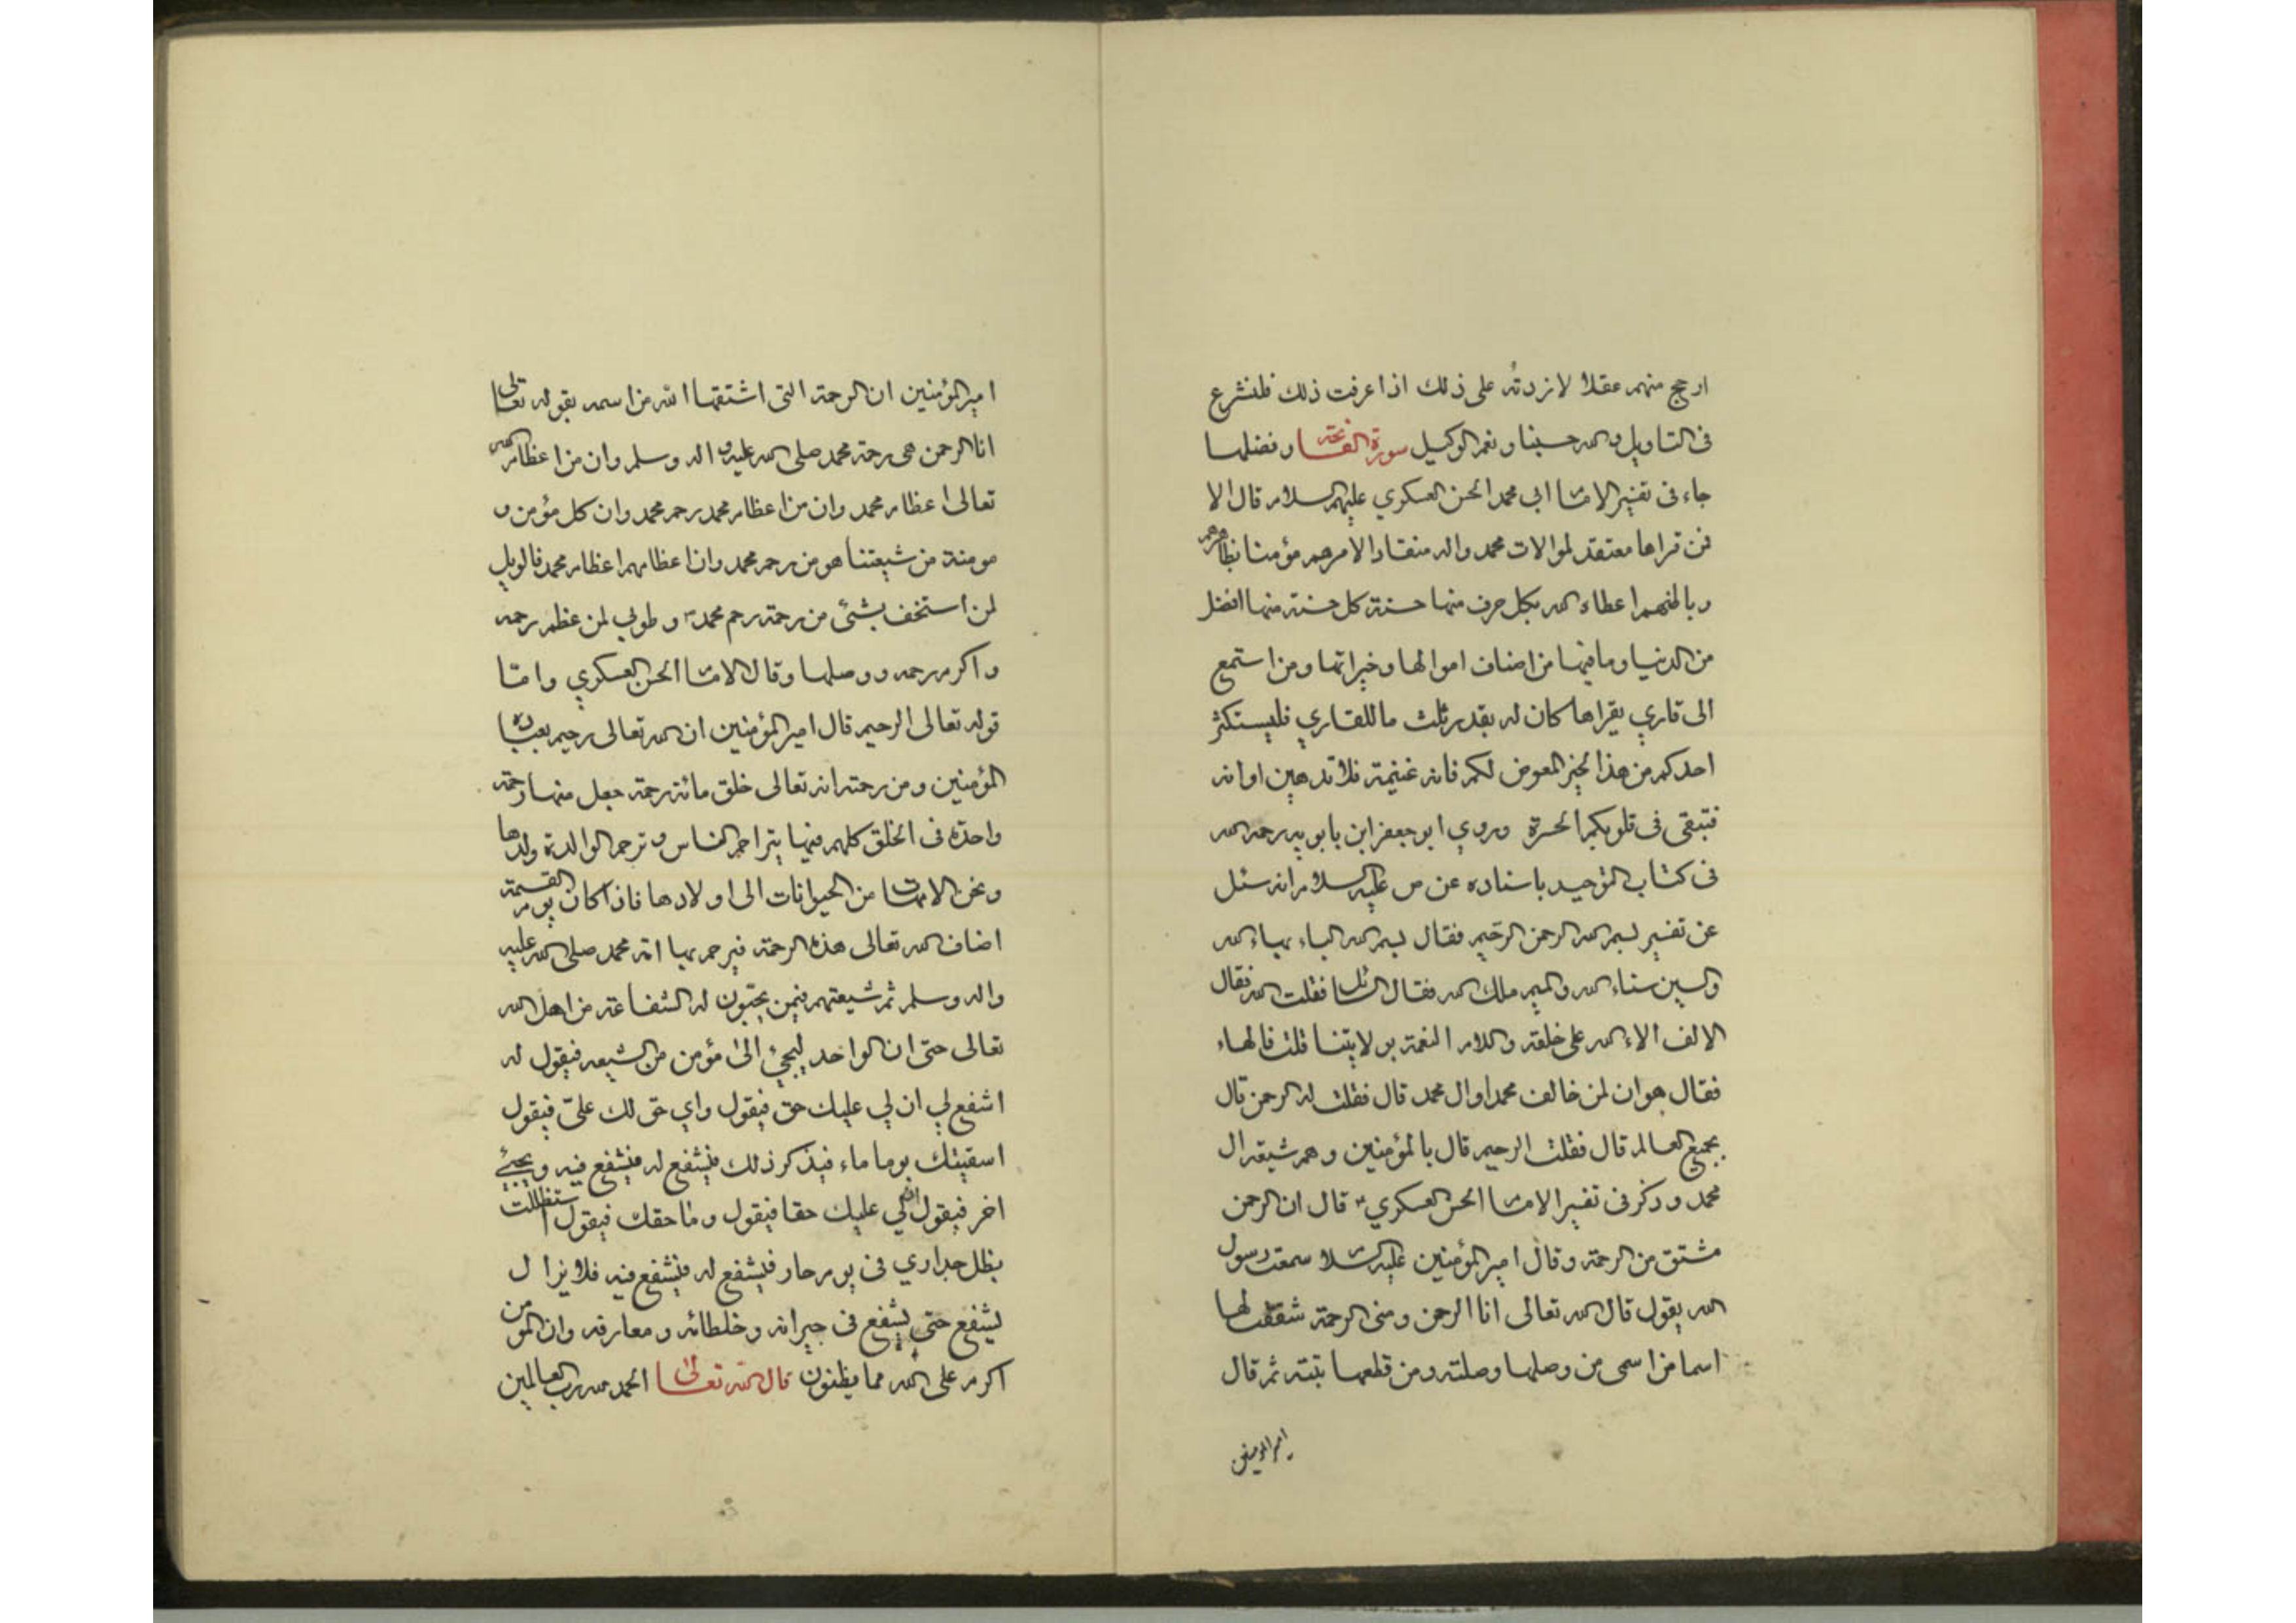 ارجح منهم عقلا لا نزدته على ذلك اذا عرفت ذلك فلنشرع
فى التاويل والله حسبنا ونعم الوكيل سورة الفاتحة وفضلها
جاء فى تفسير الامام ابى محمد الحسن العسكري عليهم السلام قال الا
فمن قراها معتقد لموالات محمد واله منقادا لامرهم مؤمنا بظاهرهم
وباطنهم اعطاه الله بكل حرف منها حسنة كل حسنة منها افضل
من الدنيا وما فيها من اصناف اموالها وخيراتها ومن استمع
الى قاري يقراها كان له بقدر ثلث ما للقاري فليستكثر
احدكم من هذا الخير المعوض لكم فانه غنيمة فلا تدهبن اوانه
فتبقى فى قلوبكم الحسرة وروي ابو جعفر ابن بابويه رحمه الله
فى كتاب التوحيد باسناده عن ص عليه السلام انه سئل
عن تفسير بسم الله الرحمن الرحيم فقال بسم الله الباء بهاء الله
والسين سناء الله والميم ملك الله فقال السائل فقلت الله فقال
الالف الاء الله على خلقه واللام النعمة بولايتنا قلت فالهاء
فقال هوان لمن خالف محمدا وال محمد قال فقلت له الرحمن قال
بجميع العالم قال فقلت الرحيم قال بالمؤمنين وهم شيعة ال
محمد وذكر فى تفسير الامام الحسن العسكري ع قال ان الرحمن
مشتق من الرحمة وقال امير المؤمنين عليه السلام سمعت رسول
الله يقول قال الله تعالى انا الرحمن ومنى الرحمة شققت لها
اسما من اسمى من وصلها وصلته ومن قطعها بتته ثم قال
امير المؤمنين
امير المؤمنين ان الرحمة التى اشتقها الله من اسمه بقوله تعالى
انا الرحمن هى رحمة محمد صلى الله عليه و اله وسلم وان من اعظام الله
تعالى اعظام محمد وان من اعظام محمد رحم محمد وان كل مؤمن و
مومنة من شيعتنا هو من رحم محمد وان اعظامهم اعظام محمد فالويل
لمن استخف بشئ من رحمة رحم محمد ص وطوبي لمن عظم رحمه
واكرم رحمه ووصلها وقال الامام الحسن العسكري واما
قوله تعالى الرحيم قال امير المؤمنين ان الله تعالى رحيم بعباده
المؤمنين ومن رحمته انه تعالى خلق مائة رحمة جعل منها رحمة
واحدة فى الخلق كلهم فبها يتراحم الناس و ترحم الوالدة ولدها
وتحن الامهات من الحيوانات الى اولادها فاذا كان يوم القيمة
اضاف الله تعالى هذه الرحمة فيرحم بها امة محمد صلى الله عليه
واله وسلم ثم شيعتهم فيمن يحبون له الشفاعة من اهل الله
تعالى حتى ان الواحد ليجئ الى مؤمن من الشيعه فيقول له
اشفع لي ان لي عليك حق فيقول واي حق لك علىّ فيقول
اسقيتك يوما ماء فيذكر ذلك فيشفع له فيشفع فيه ويجئ
اخر فيقول ان لي عليك حقا فيقول وما حقك فيقول استظللت
بظل جداري فى يوم حار فيشفع له فيشفع فيه فلا يزال
يشفع حتى يشفع فى جيرانه وخلطائه ومعارفه وان المؤمن
اكرم على الله مما يظنون قال الله تعالى الحمد لله رب العالمين